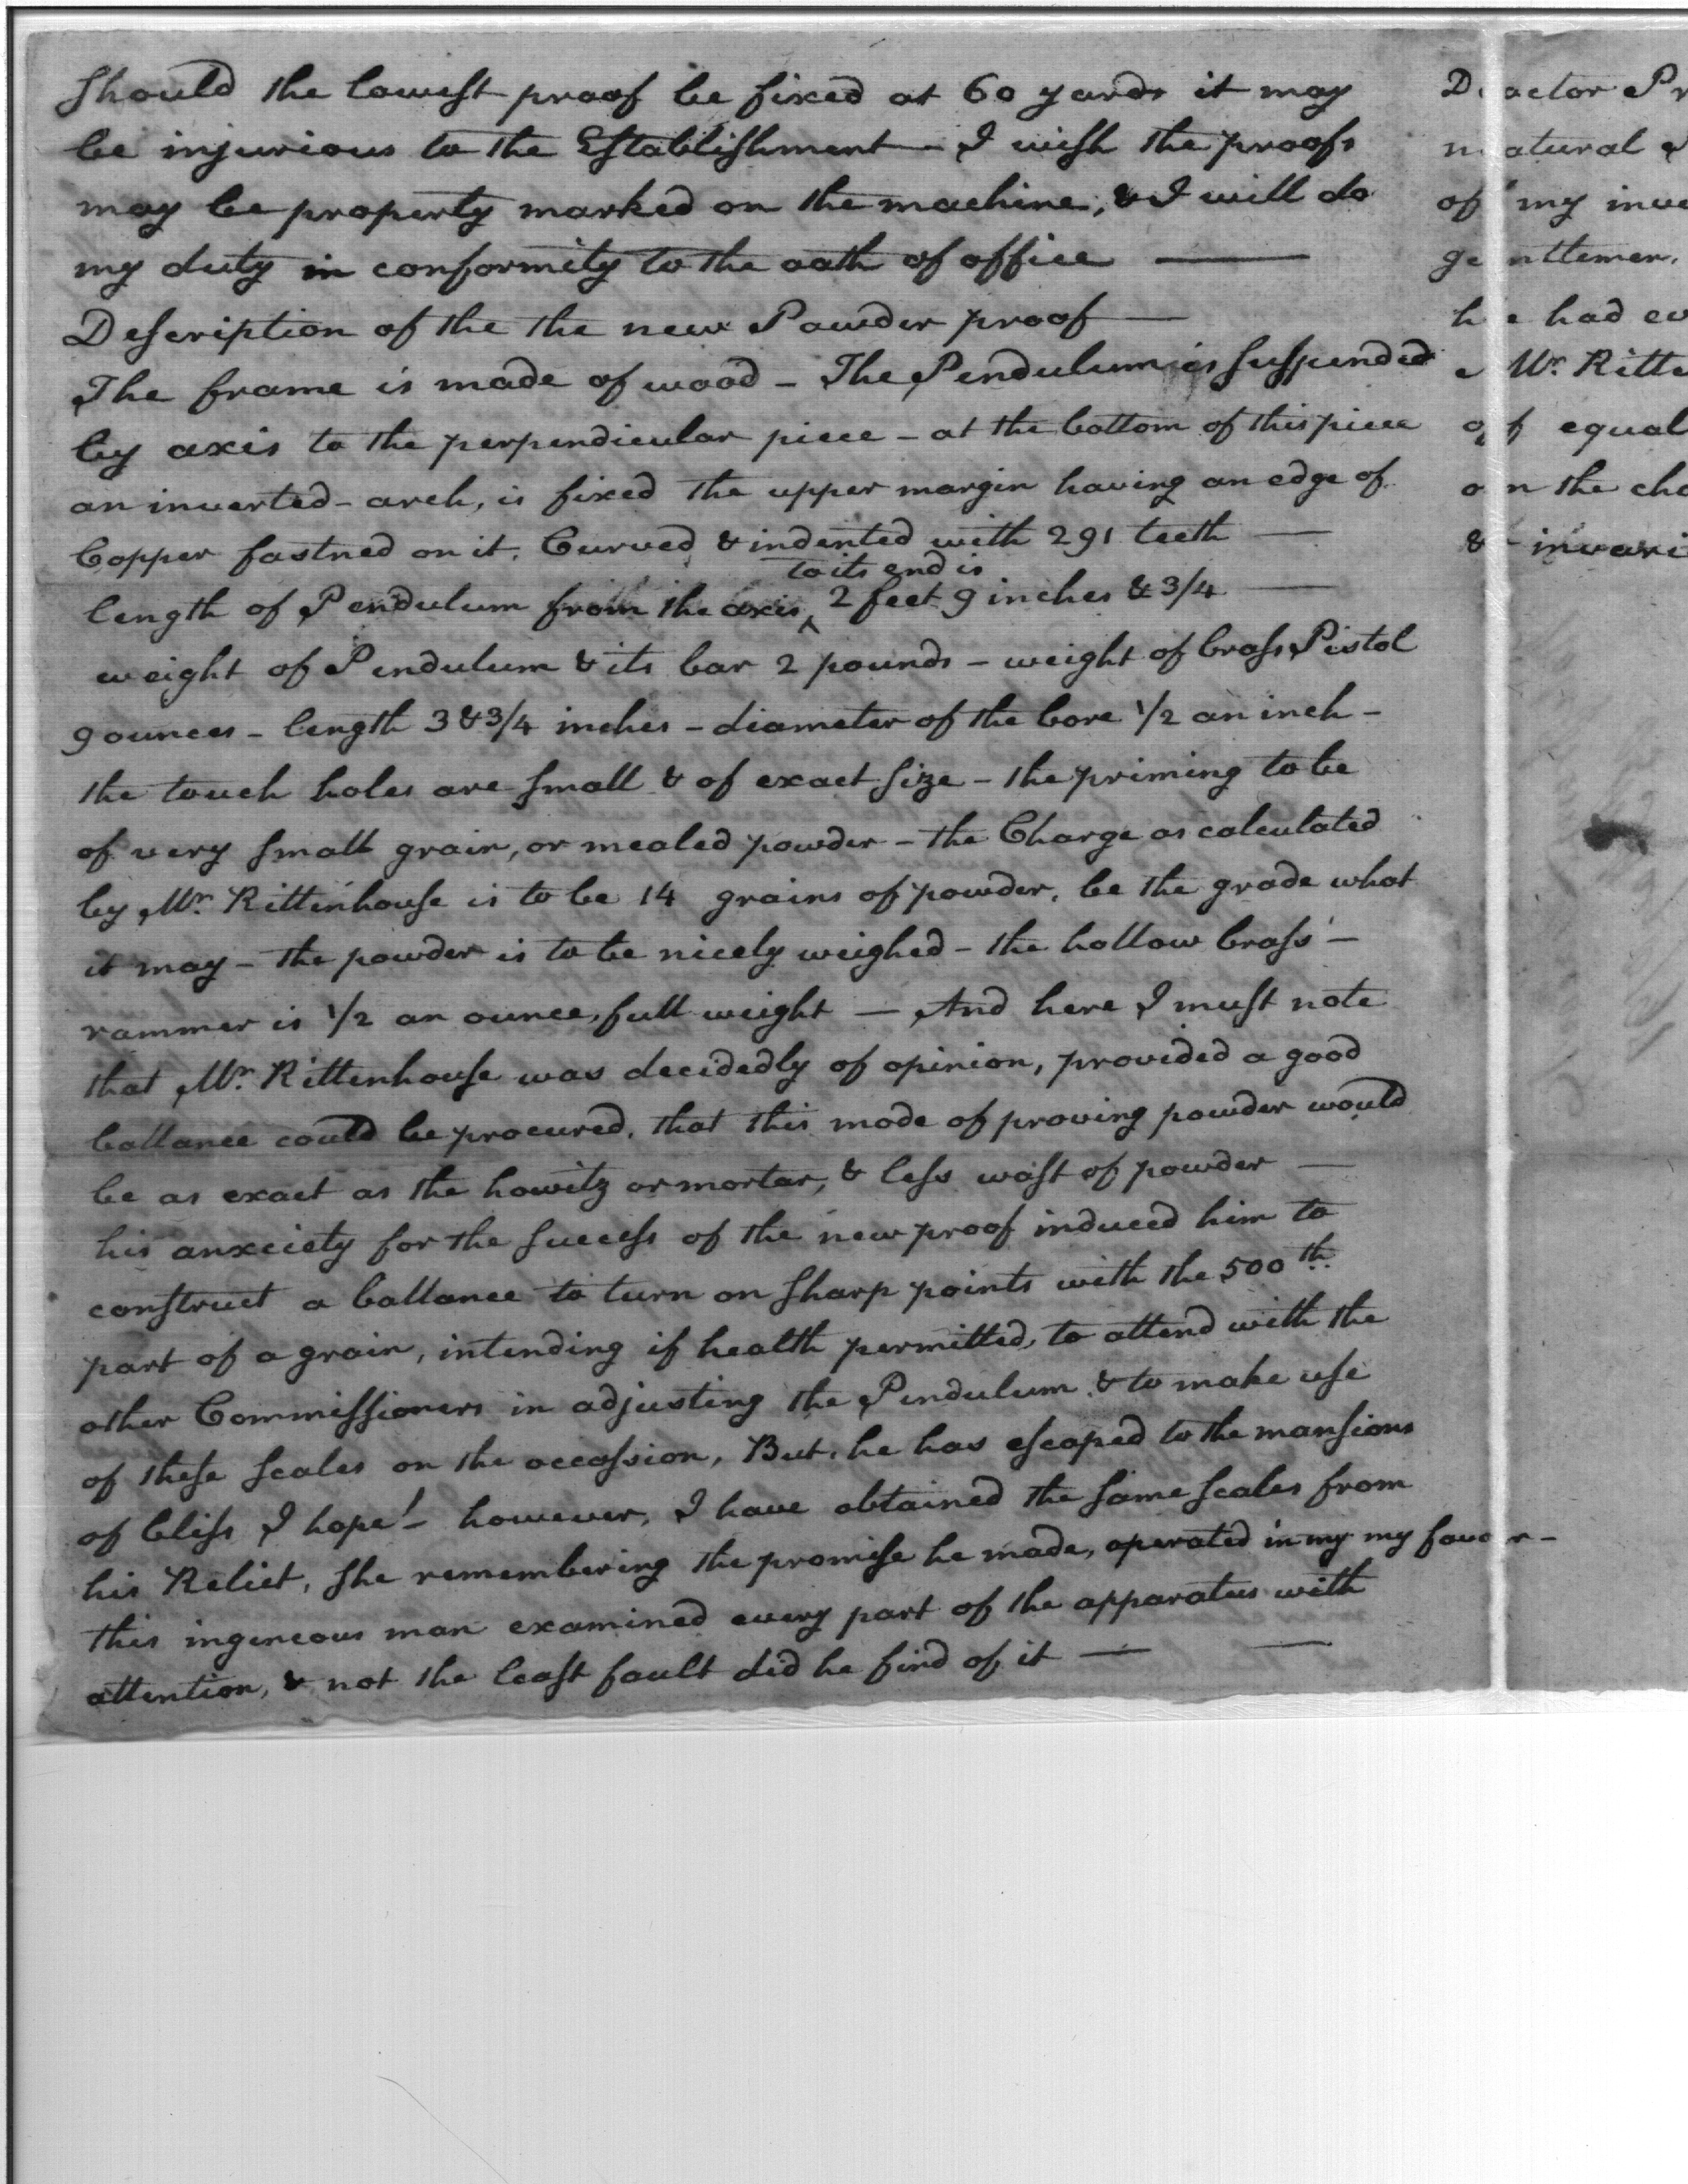 Should the lowest proof be fixed at 60 yards it may
be injurious to the Establishment — I wish the proofs
may be properly marked on the machine, & I will do
my duty in conformity to the oath of office —
Description of the the new Powder proof —
The frame is made of wood – The Pendulum is suspended
by axis to the perpendicular piece – at the bottom of this piece
an inverted – arch, is fixed the upper margin having an edge of
Copper fastned on it, Curved & indented with 291 teeth —
to its end is
length of Pendulum from the axis ^ 2 feet 9 inches & 3/4 —
weight of Pendulum & its bar 2 pounds – weight of brass Pistol
9 ounces – length 3 & 3/4 inches – diameter of the bore 1/2 an inch –
the touch holes are small & of exact size – the priming to be
of very small grain, or mealed powder – the Charge as calculated
by Mr. Rittinhouse is to be 14 grains of powder, be the grade what
it may – the powder is to be nicely weighed – the hollow brass –
rammer is 1/2 an ounce, full weight — And here I must note
that Mr. Rittenhouse was decidedly of opinion, provided a good
ballance could be procured, that this mode of proving powder would
be as exact as the howitz or mortar, & less wast of powder —
his anxciety for the success of the new proof induced him to
construct a ballance to turn on sharp points with the 500th
part of a grain, intending if health permitted, to attend with the
other Commissioners in adjusting the Pendulum & to make use
of these scales on the occassion, But, he has escaped to the mansions
of bliss I hope! – however, I have obtained the same scales from
his Relict, she remembering the promise he made, operated in my my favour –
this ingeneous man examined every part of the apparatus with
attention, & not the least fault did he find of it — —
Doctor Pr
natural
of my inve
gentlemen,
he had ev
Mr. Ritte
of equal
on the cha
& invari